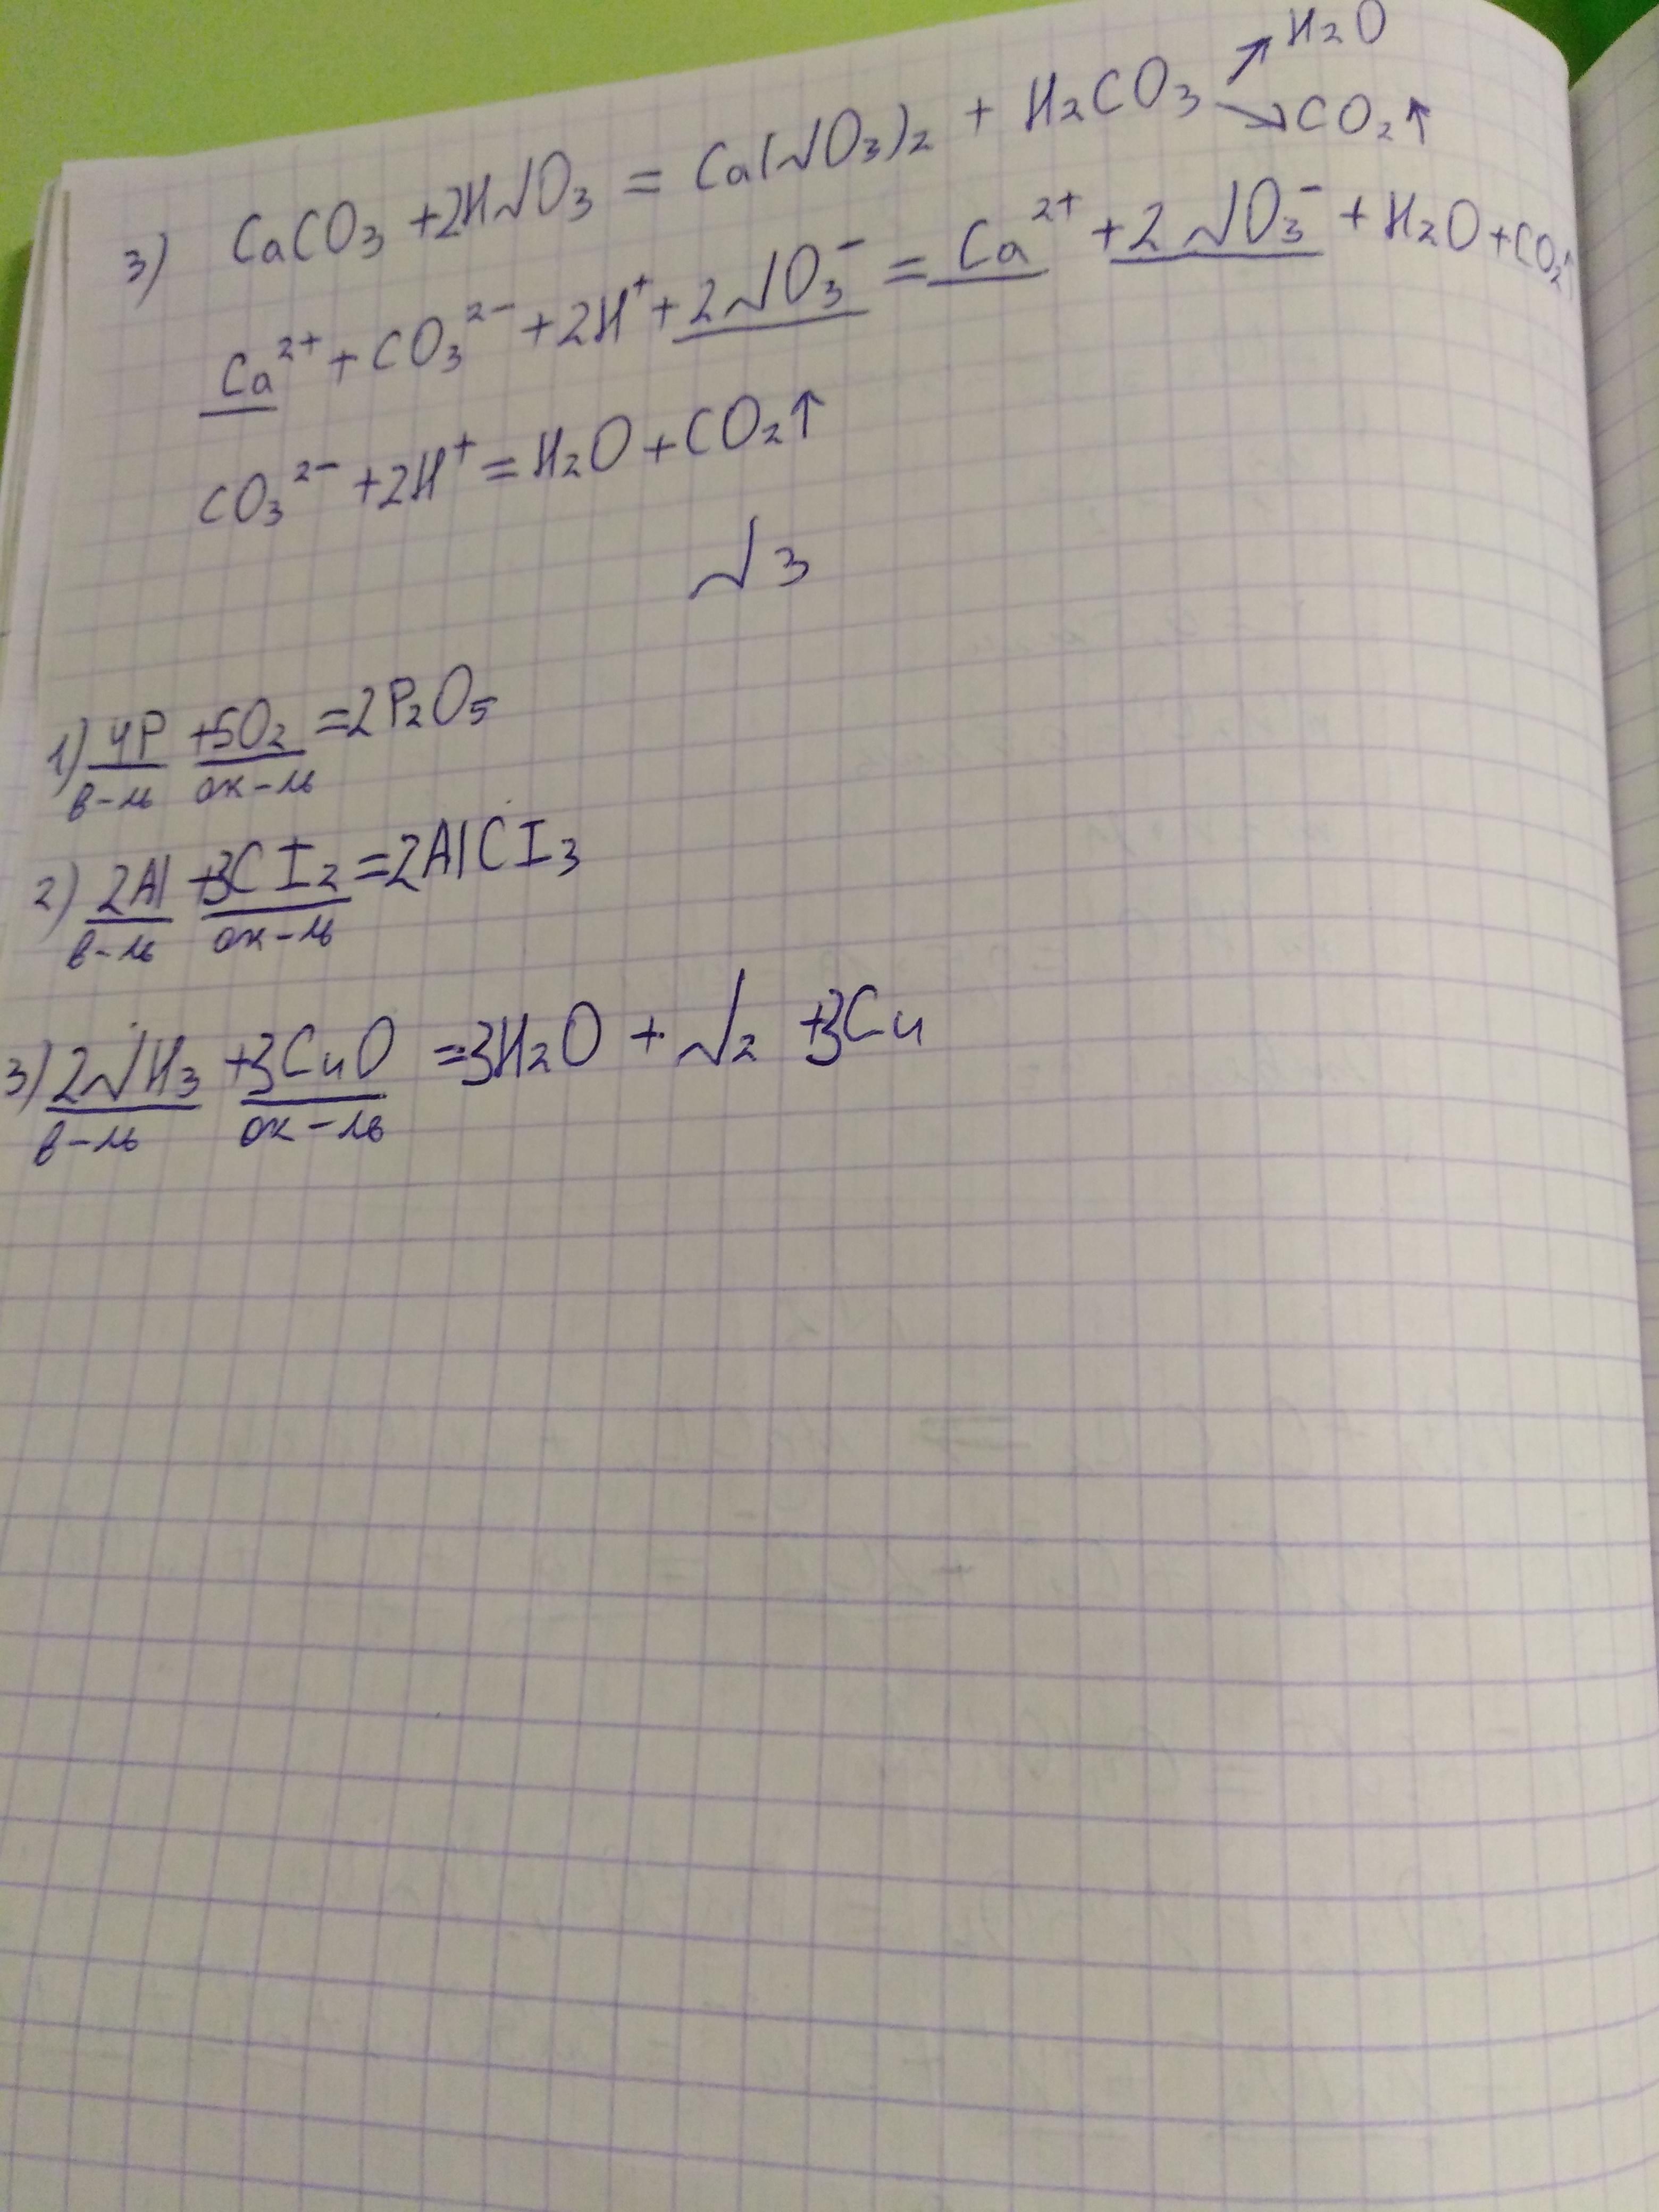 H₂O
3) CaCO₃ +2HNO₃ = Ca(NO₃)₂ + H₂CO₃ ↗ ↘ CO₂↑
Ca²⁺ + CO₃²⁻ + 2H⁺ + 2NO₃⁻ = Ca²⁺ + 2NO₃⁻ + H₂O + CO₂↑
CO₃²⁻ + 2H⁺ = H₂O + CO₂↑
N3
1) 4P +5O₂ =2P₂O₅
в-ль ок-ль
2) 2Al +3Cl₂ =2AlCl₃
в-ль ок-ль
3) 2NH₃ +3CuO =3H₂O + N₂ +3Cu
в-ль ок-ль